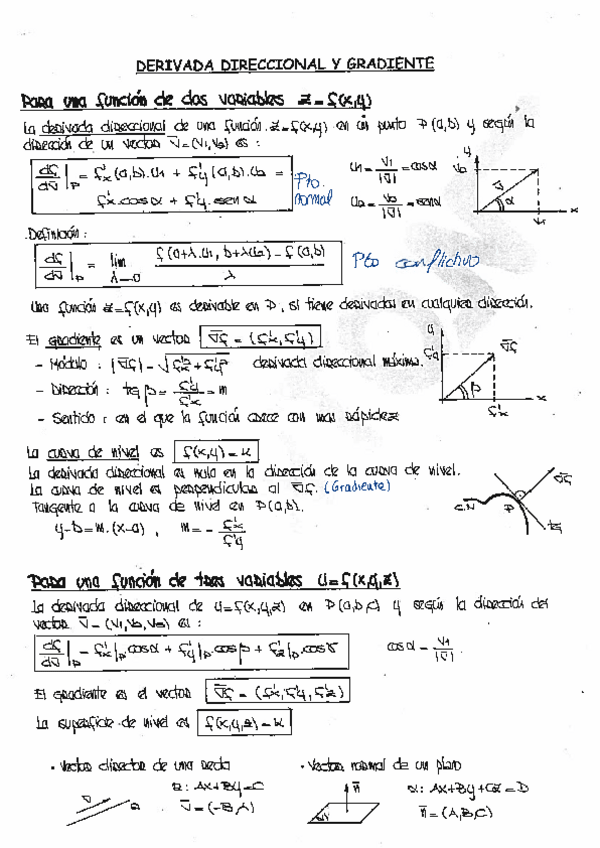 DERIVADA DIRECCIONAL Y GRADIENTE
Para una función de dos variables z = f(x,y)
La derivada direccional de una función z=f(x,y) en un punto P(a,b) y según la
dirección de un vector v̄=(v₁,v₂) es :
df/dv̄|p = f'x(a,b).u₁ + f'y(a,b).u₂ =
f'x.cosα + f'y.senα
Pto. normal
u₁ = v₁/|v̄| = cosα
u₂ = v₂/|v̄| = senα
y
v₂
v̄
α
v₁
x
Definición :
df/dv̄|p = lim λ→0 (f(a+λ.u₁, b+λu₂) - f(a,b))/λ
Pto conflictivo
Una función z=f(x,y) es derivable en P, si tiene derivadas en cualquier dirección.
El gradiente es un vector ∇̄f = (f'x, f'y)
- Módulo : |∇̄f| = √(f'x² + f'y²) derivada direccional máxima.
- Dirección : tg β = f'y/f'x = m
- Sentido : en el que la función crece con mas rápidez
y
f'y
∇̄f
β
f'x
x
La curva de nivel es f(x,y) = k
La derivada direccional es nula en la dirección de la curva de nivel.
La curva de nivel es perpendicular al ∇̄f. (Gradiente)
Tangente a la curva de nivel en P(a,b).
y-b=m.(x-a) , m = - f'x/f'y
∇̄f
C.N
P
tg
Para una función de tres variables u=f(x,y,z)
La derivada direccional de u=f(x,y,z) en P(a,b,c) y según la dirección del
vector v̄ = (v₁,v₂,v₃) es :
df/dv̄|p = f'x|p cosα + f'y|p cosβ + f'z|p cosγ
cosα = v₁/|v̄|
El gradiente es el vector ∇̄f = (f'x, f'y, f'z)
La superficie de nivel es f(x,y,z) = k
• Vector director de una recta
• Vector normal de un plano
v̄
r: Ax+By=C
v̄ = (-B,A)
n̄
α: Ax+By+Cz=D
n̄ = (A,B,C)